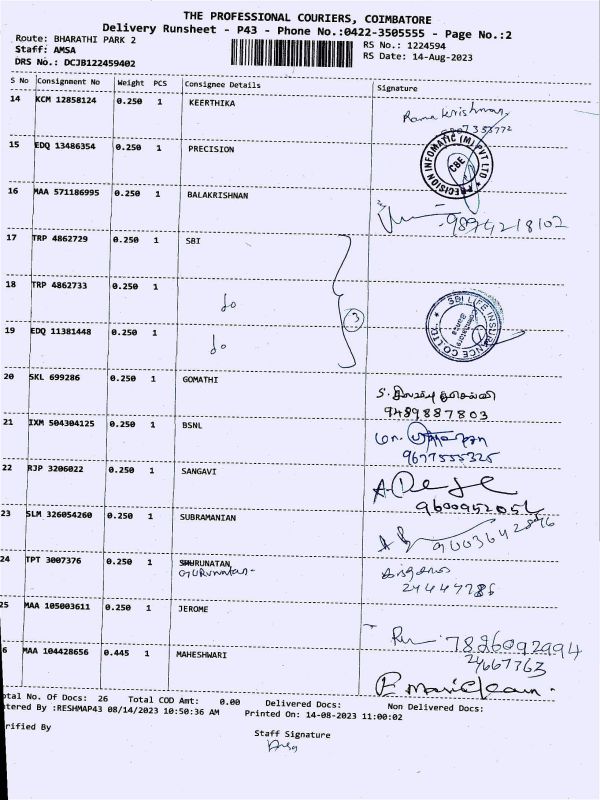 THE PROFESSIONAL COURIERS, COIMBATORE
Delivery Runsheet - P43 - Phone No.:0422-3505555 - Page No.:2
Route: BHARATHI PARK 2
RS No.: 1224594
Staff: AMSA
RS Date: 14-Aug-2023
DRS No.: DCJB122459402
S No Consignment No Weight PCS Consignee Details Signature
14 KCM 12858124 0.250 1 KEERTHIKA
Ramakrishnan
15 EDQ 13486354 0.250 1 PRECISION
PRECISION INFOMATIC (M) PVT LTD
CBE
16 MAA 571186995 0.250 1 BALAKRISHNAN
9894218102
17 TRP 4862729 0.250 1 SBI
18 TRP 4862733 0.250 1
do
3
SBI LIFE INSURANCE CO LTD
Coimbatore
19 EDQ 11381448 0.250 1
do
20 SKL 699286 0.250 1 GOMATHI
9489887803
21 IXM 504304125 0.250 1 BSNL
9677555325
22 RJP 3206022 0.250 1 SANGAVI
23 SLM 326054260 0.250 1 SUBRAMANIAN
24 TPT 3007376 0.250 1 SHURUNATAN
Gurunatan
24447786
25 MAA 105003611 0.250 1 JEROME
7826092994
24667763
6 MAA 104428656 0.445 1 MAHESHWARI
otal No. Of Docs: 26 Total COD Amt: 0.00 Delivered Docs: Non Delivered Docs:
ntered By :RESHMAP43 08/14/2023 10:50:36 AM Printed On: 14-08-2023 11:00:02
rified By
Staff Signature